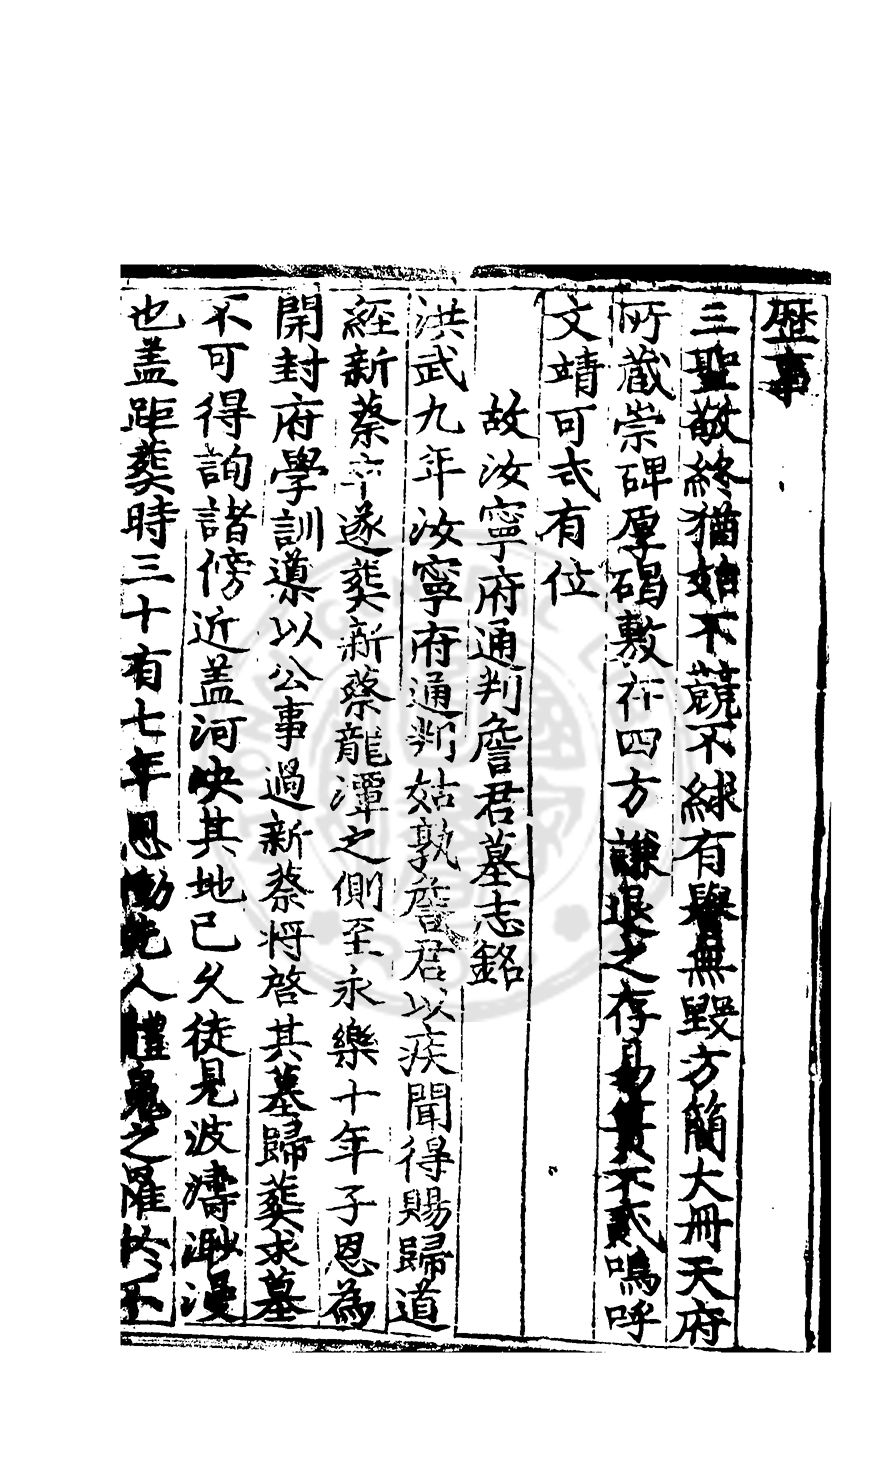 歷事
三聖敬終猶始不競不絿有譽無毀方簡大冊天府
所藏崇碑厚碣敷在四方謙退之存易簀不貳嗚呼
文靖可式有位
故汝寧府通判詹君墓志銘
洪武九年汝寧府通判姑孰詹君以疾聞得賜歸道
經新蔡卒遂葬新蔡龍潭之側至永樂十年子恩為
開封府學訓導以公事過新蔡將啓其墓歸葬求墓
不可得詢諸傍近蓋河決其地已久徒見波濤渺漫
也蓋距葬時三十有七年恩慟先人體魄之罹於不